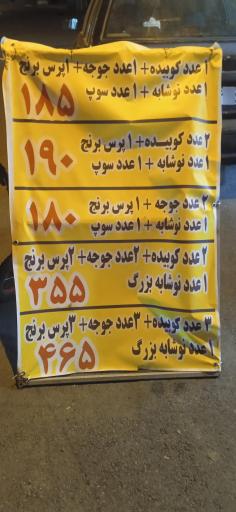 ۱ عدد کوبیده + ۱عدد جوجه + ۱پرس برنج
۱ عدد نوشابه + ۱ عدد سوپ
۱۸۵
۲ عدد کوبیـــده + ۱ پرس برنج
۱ عدد نوشابه + ۱ عدد سوپ
۱۹۰
۲ عدد جوجه + ۱ پرس برنج
۱ عدد نوشابه + ۱ عدد سوپ
۱۸۰
۲ عدد کوبیده + ۲عدد جوجه + ۲پرس برنج
۱ عدد نوشابه بزرگ
۳۵۵
۳ عدد کوبیده + ۳عدد جوجه + ۳پرس برنج
۱ عدد نوشابه بزرگ
۴۶۵